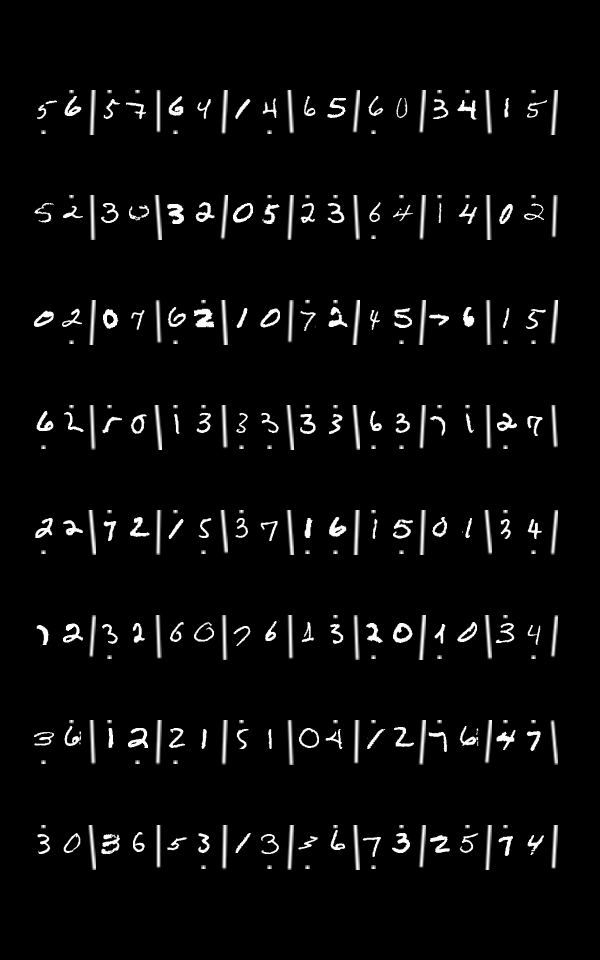 5̣ 6̇ | 5̇ 7̇ | 6̣ 4 | 1 4̣ | 6 5 | 6̣ 0 | 3̇ 4̇ | 1 5̇ |
5 2̇ | 3 0 | 3 2 | 0 5̇ | 2̇ 3̇ | 6̣ 4̇ | 1̇ 4 | 0 2̇ |
0 2̇ | 0 7 | 6̣ 2̇ | 1 0 | 7̇ 2̇ | 4 5̣ | 7 6̇ | 1̣ 5̣ |
6̣ 2̇ | 5̇ 0 | 1̇ 3̇ | 3̣ 3̣ | 3̇ 3̇ | 6̣ 3̣ | 7 1̇ | 2̣ 7 |
2̣ 2 | 7̇ 2 | 1 5̣ | 3̇ 7 | 1̣ 6̣ | 1̣ 5̣ | 0 1 | 3 4̣ |
7 2 | 3̣ 2 | 6 0 | 7 6 | 1 3̇ | 2̣ 0 | 1̣ 0 | 3 4̣ |
3̣ 6̇ | 1 2̣ | 2̣ 1 | 5̇ 1 | 0 4̇ | 1̇ 2 | 7̇ 6̇ | 4̇ 7̇ |
3̇ 0 | 3 6 | 5 3̣ | 1 3̣ | 3̣ 6̇ | 7̣ 3̇ | 2 5̇ | 7̇ 4 |